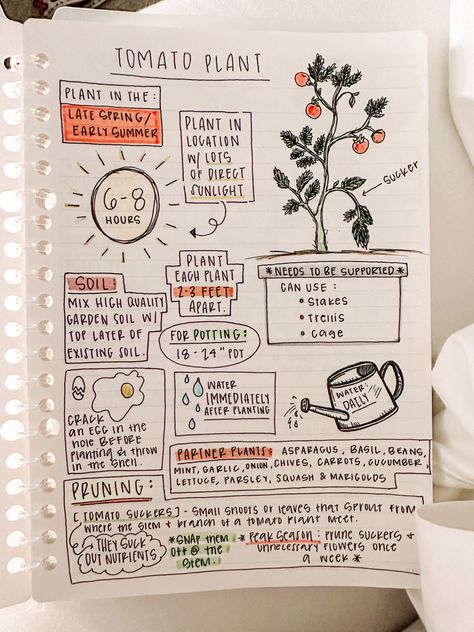 TOMATO PLANT
PLANT IN THE:
LATE SPRING/
EARLY SUMMER
PLANT IN
LOCATION
W/ LOTS
OF DIRECT
SUNLIGHT
6-8
HOURS
SUCKER
PLANT
EACH PLANT
2-3 FEET
APART.
SOIL:
MIX HIGH QUALITY
GARDEN SOIL W/
TOP LAYER OF
EXISTING SOIL.
FOR POTTING:
18-24" POT
*NEEDS TO BE SUPPORTED*
CAN USE:
• Stakes
• Trellis
• Cage
CRACK
an EGG in the
hole BEFORE
Planting & throw
in the shell.
WATER
IMMEDIATELY
AFTER PLANTING
WATER:
DAILY
PARTNER PLANTS: ASPARAGUS, BASIL, BEANS,
MINT, GARLIC, ONION, CHIVES, CARROTS, CUCUMBER,
LETTUCE, PARSLEY, SQUASH & MARIGOLDS
PRUNING:
[TOMATO SUCKERS] - Small shoots or leaves that sprout from
where the stem + branch of a tomato plant meet.
→ THEY SUCK
OUT NUTRIENTS
*SNAP them
off @ the
stem.
*Peak Season: prune suckers +
unnecessary flowers once
a week*